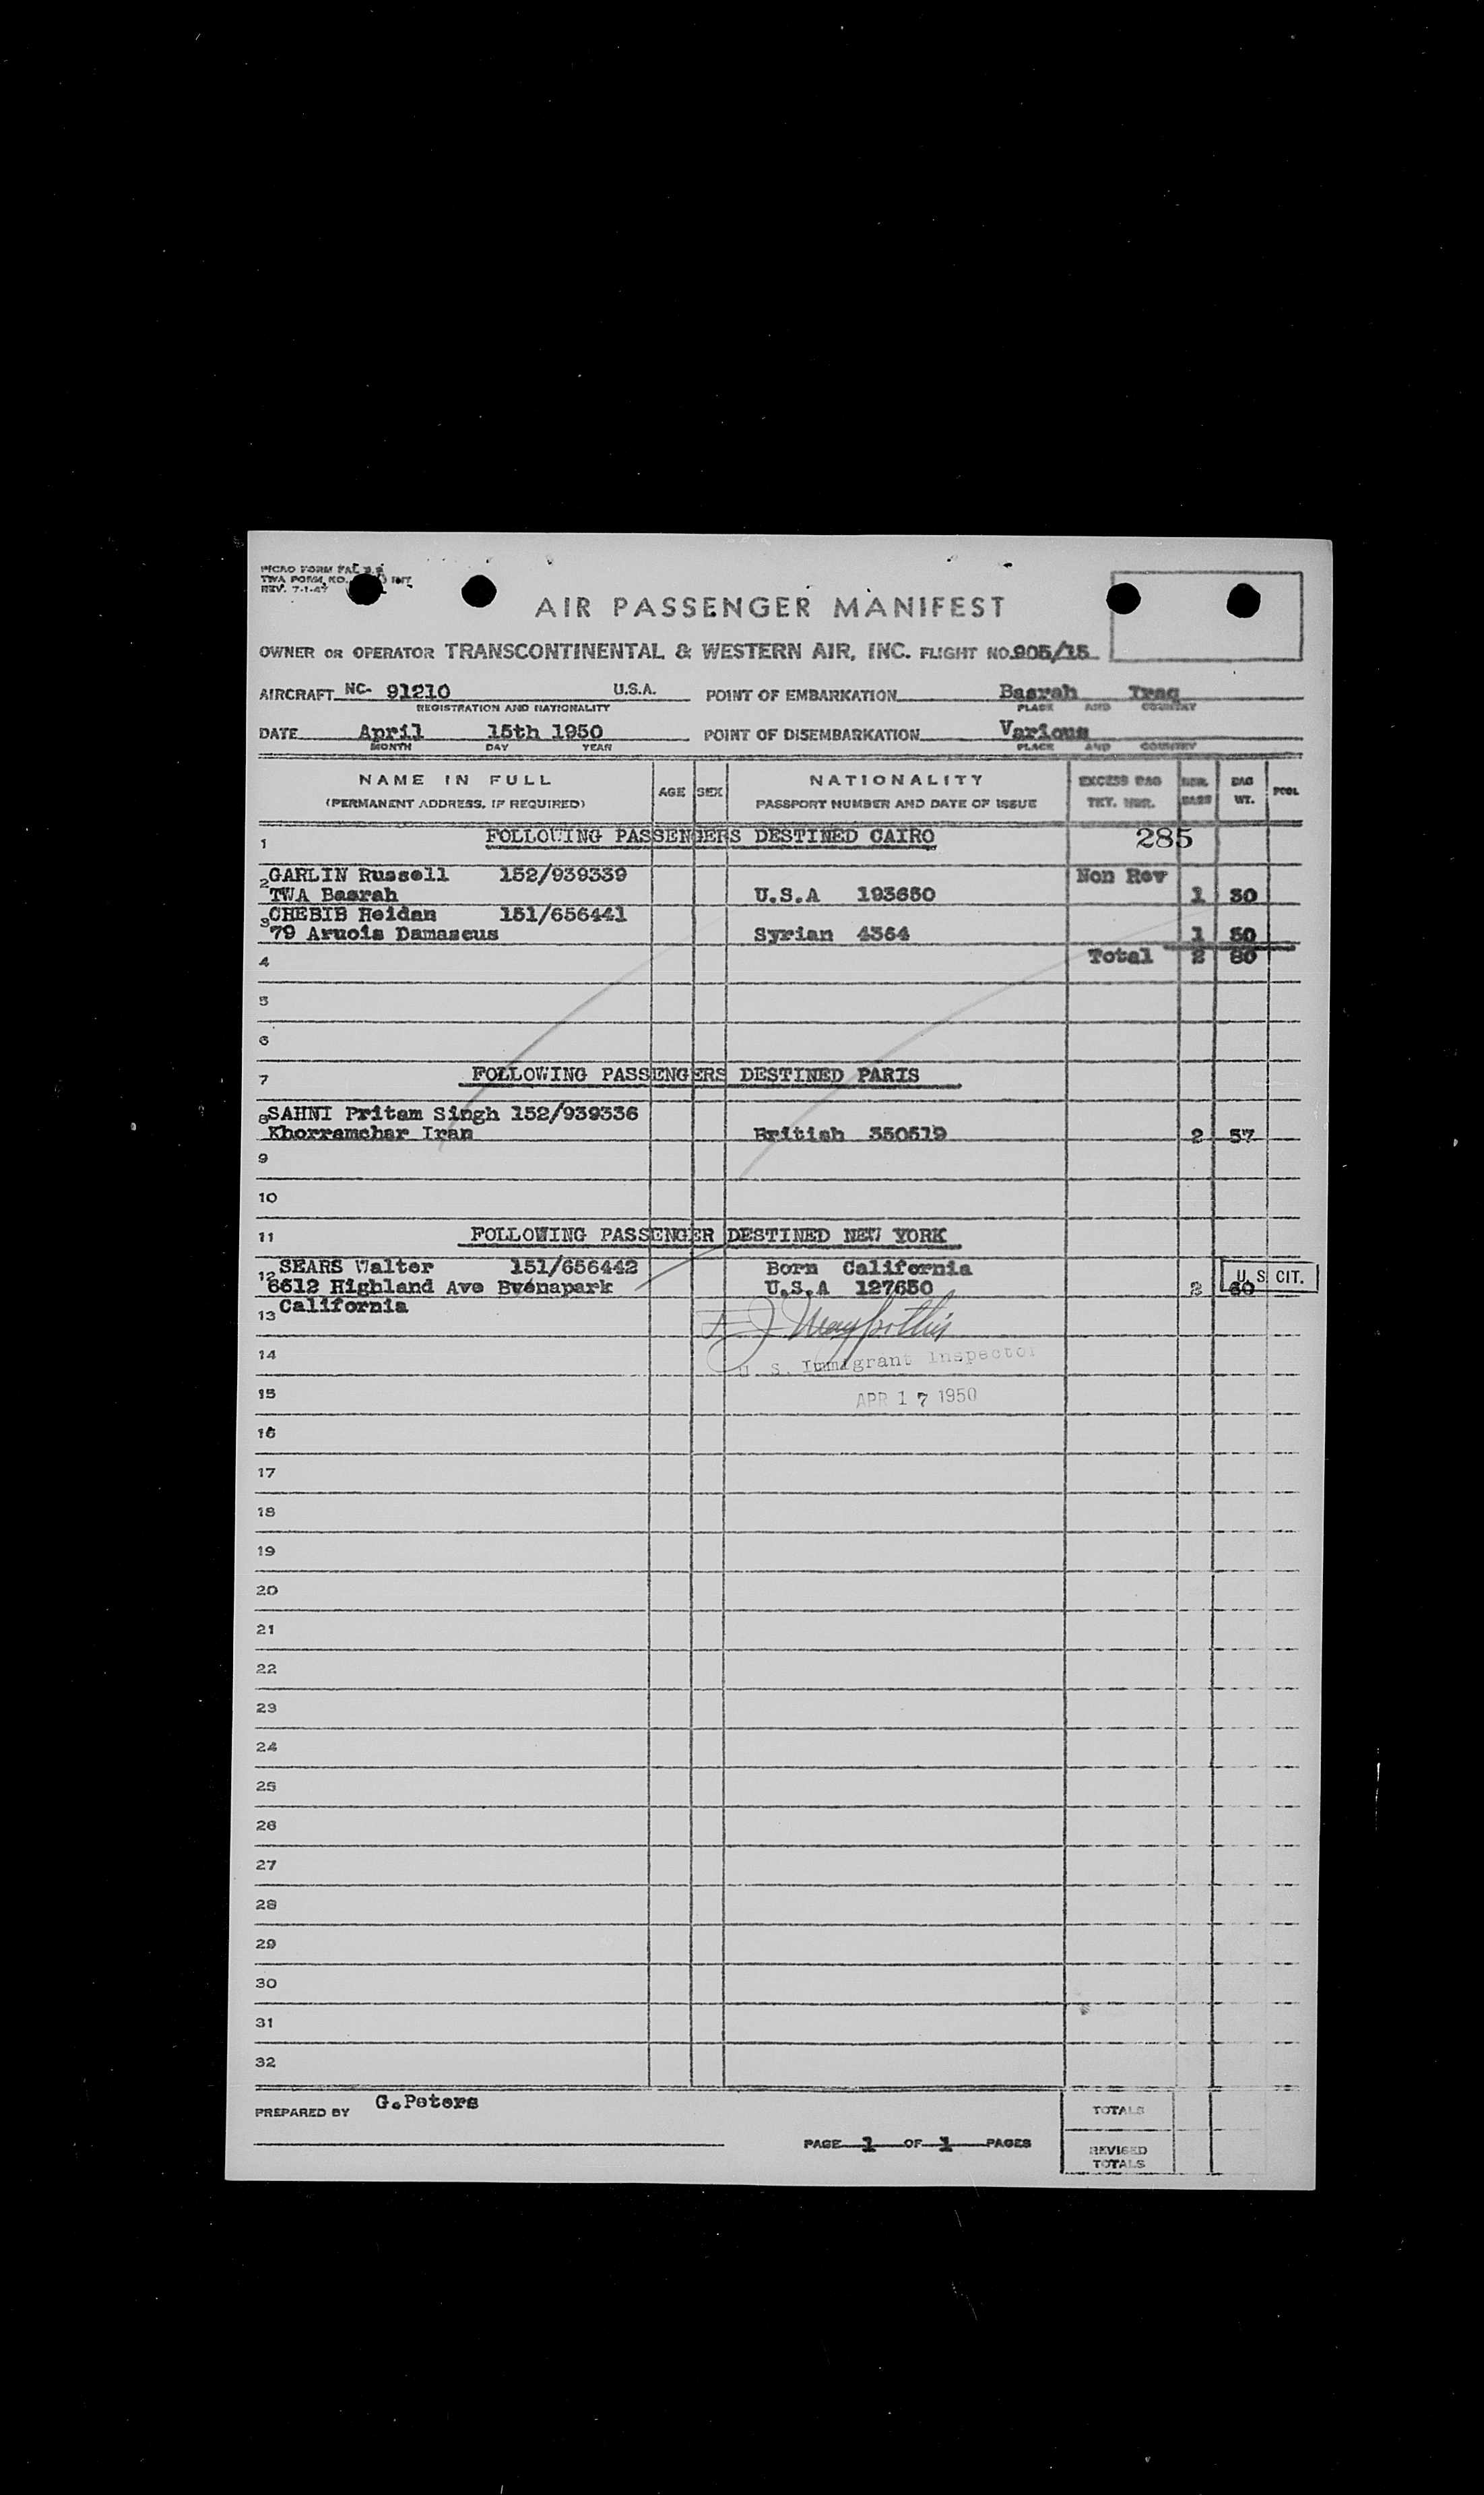 MICRO FORM PAL
TWA FORM NO. INT
REV. 7-1-47
AIR PASSENGER MANIFEST
OWNER OR OPERATOR TRANSCONTINENTAL & WESTERN AIR, INC. FLIGHT NO. 905/15
AIRCRAFT NC- 91210 U.S.A. POINT OF EMBARKATION Basrah Iraq
REGISTRATION AND NATIONALITY PLACE AND COUNTRY
DATE April 15th 1950 POINT OF DISEMBARKATION Various
MONTH DAY YEAR PLACE AND COUNTRY
NAME IN FULL AGE SEX NATIONALITY EXCESS BAG BAG POOL
(PERMANENT ADDRESS, IF REQUIRED) PASSPORT NUMBER AND DATE OF ISSUE TKT. NBR. WT.
1 FOLLOWING PASSENGERS DESTINED CAIRO 285
2 GARLIN Russell 152/939339 Non Rev
TWA Basrah U.S.A 193650 1 30
3 CHEBIB Heidan 151/656441
79 Aruois Damascus Syrian 4364 1 50
4 Total 2 80
5
6
7 FOLLOWING PASSENGERS DESTINED PARIS
8 SAHNI Pritam Singh 152/939336
Khorramchar Iran British 350519 2 57
9
10
11 FOLLOWING PASSENGER DESTINED NEW YORK
12 SEARS Walter 151/656442 Born California
6612 Highland Ave Buenapark U.S.A 127650 2 60 U.S. CIT.
13 California
14 U. S. Immigrant Inspector
15 APR 17 1950
16
17
18
19
20
21
22
23
24
25
26
27
28
29
30
31
32
PREPARED BY G.Peters TOTALS
PAGE 1 OF 1 PAGES REVISED
TOTALS